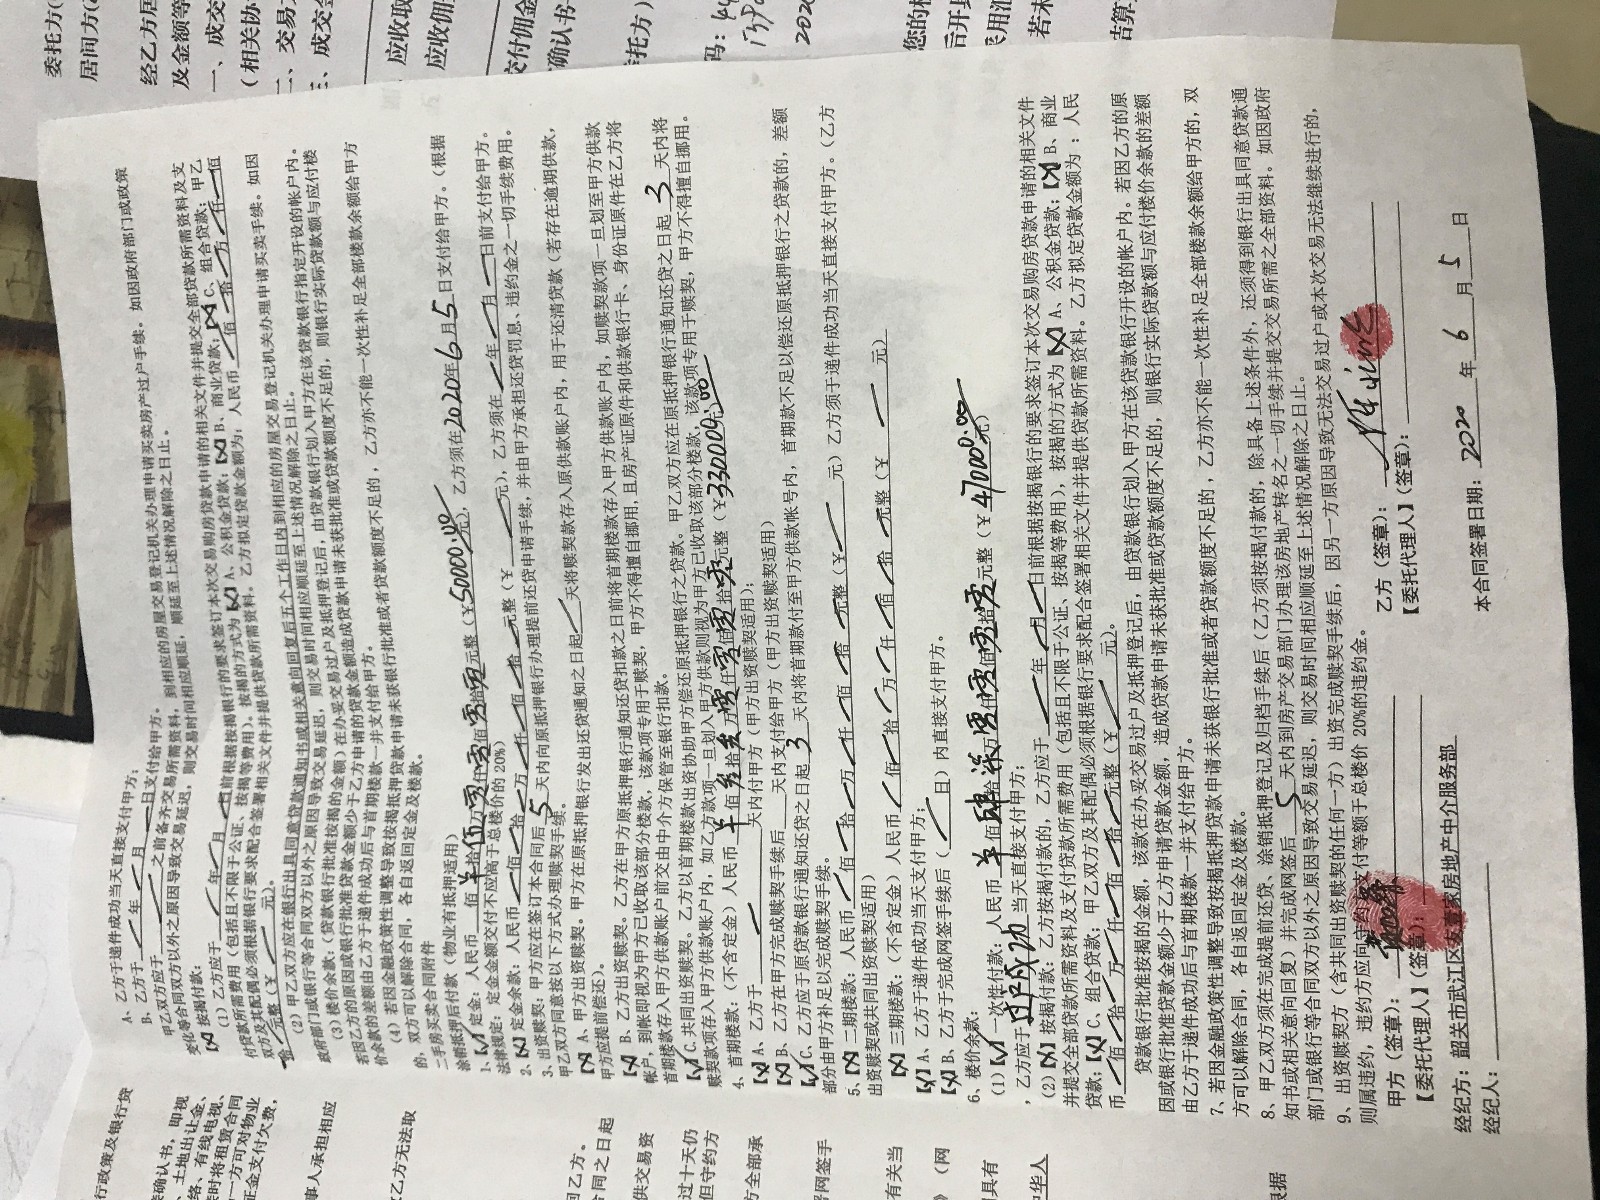 A、乙方于递件成功当天直接支付甲方;
B、乙方于 年 月 日支付给甲方。
甲乙双方应于 之前备齐交易所需资料,到相应的房屋交易登记机关办理申请买卖房产过户手续。如因政府部门或政策
变化等合同双方以外之原因导致交易延迟,则交易时间相应顺延,顺延至上述情况解除之日止。
按揭付款:
(1)乙方应于 年 月 日前根据按揭银行的要求签订本次交易购房贷款申请的相关文件并提交全部贷款所需资料及支
付贷款所需费用(包括且不限于公证、按揭等费用)。按揭的方式为 A、公积金贷款; B、商业贷款; C、组合贷款;甲乙
双方及其配偶必须根据银行要求配合签署相关文件并提供贷款所需资料,乙方拟定贷款金额为:人民币 佰 拾 万 仟 佰
拾 元整(¥ 元)。
(2)甲乙双方应在银行出具同意贷款通知书或相关意向回复后五个工作日内到相应的房屋交易登记机关办理申请买卖手续。如因
政府部门或银行等合同双方以外之原因导致交易延迟,则交易时间相应顺延至上述情况解除之日止。
(3)楼价余款:(贷款银行批准按揭的金额)在办妥交易过户及抵押登记后,由贷款银行划入甲方在该贷款银行指定开设的帐户内。
若因乙方的原因或银行批准贷款金额少于乙方申请的贷款金额造成贷款申请未获批准或贷款额度不足的,则银行实际贷款额与应付楼
价余款的差额由乙方于递件成功后与首期楼款一并支付给甲方。
(4)若因金融政策性调整导致按揭抵押贷款申请未获银行批准或者贷款额度不足的,乙方亦不能一次性补足全部楼款余额给甲方
的,双方可以解除合同,各自返回定金及楼款。
二手房买卖合同附件
涂销抵押后付款(物业有抵押适用)
1、定金:人民币 佰 拾 伍 万 零 仟 零 佰 零 拾 零 元整(¥50000.00元),乙方须在2020年6月5日支付给甲方。(根据
法律规定:定金金额交付不应高于总楼价的20%)
2、定金余款:人民币 佰 拾 万 仟 佰 拾 元整(¥ 元),乙方须在 年 月 日前支付给甲方。
3、出资赎契:甲方应在签订本合同后5天内向原抵押银行办理提前还贷申请手续,并由甲方承担还贷罚息、违约金之一切手续费用。
甲乙双方同意按以下方式办理赎契手续。
A、甲方出资赎契。甲方在原抵押银行发出还贷通知之日起 天将赎契款存入原供款账户内,用于还清贷款(若存在逾期供款,
甲方应提前偿还)。
B、乙方出资赎契。乙方在甲方原抵押银行通知还贷扣款之日前将首期楼款存入甲方供款账户内,如赎契款项一旦划至甲方供款
帐户,到帐即视为甲方已收取该部分楼款,该款项专用于赎契,甲方不得擅自挪用,且房产证原件和供款银行卡、身份证原件在乙方将
首期楼款存入甲方供款账户前交由中介方保管至银行扣款。
C.共同出资赎契。乙方以首期楼款出资协助甲方偿还原抵押银行之贷款。甲乙双方应在原抵押银行通知还贷之日起 3 天内将
赎契款项存入甲方供款账户内,如乙方款项一旦划入甲方供款则视为甲方已收取该部分楼款,该款项专用于赎契,甲方不得擅自挪用。
4、首期楼款:(不含定金)人民币 佰 叁 拾 叁 万 零 仟 零 佰 零 拾 零 元整(¥330000.00元)
A、乙方于 天内付甲方(甲方出资赎契适用);
B、乙方在甲方完成赎契手续后 天内支付给甲方(甲方出资赎契适用)
C、乙方应于原贷款银行通知还贷之日起 3 天内将首期款付至甲方供款帐号内,首期款不足以偿还原抵押银行之贷款的,差额
部分由甲方补足以完成赎契手续。
5、二期楼款:人民币 佰 拾 万 仟 佰 拾 元整(¥ 元)乙方须于递件成功当天直接支付甲方。(乙方
出资赎契或共同出资赎契适用)
三期楼款:(不含定金)人民币 佰 拾 万 仟 佰 拾 元整(¥ 元)
A、乙方于递件成功当天支付甲方;
B、乙方于完成网签手续后( 日)内直接支付甲方。
6、楼价余款:
(1)一次性付款:人民币 佰 肆 拾 柒 万 零 仟 零 佰 零 拾 零 元整(¥470000.00元)
,乙方应于 过户成功 当天直接支付甲方;
(2)按揭付款:乙方按揭付款的,乙方应于 年 月 日前根据按揭银行的要求签订本次交易购房贷款申请的相关文件
并提交全部贷款所需资料及支付贷款所需费用(包括且不限于公证、按揭等费用),按揭的方式为 A、公积金贷款; B、商业
贷款; C、组合贷款;甲乙双方及其配偶必须根据银行要求配合签署相关文件并提供贷款所需资料。乙方拟定贷款金额为:人民
币 佰 拾 万 仟 佰 拾 元整(¥ 元)。
贷款银行批准按揭的金额,该款在办妥交易过户及抵押登记后,由贷款银行划入甲方在该贷款银行开设的帐户内。若因乙方的原
因或银行批准贷款金额少于乙方申请贷款金额,造成贷款申请未获批准或贷款额度不足的,则银行实际贷款额与应付楼价余款的差额
由乙方于递件成功后与首期楼款一并支付给甲方。
7、若因金融政策性调整导致按揭抵押贷款申请未获银行批准或者贷款额度不足的,乙方亦不能一次性补足全部楼款余额给甲方的,双
方可以解除合同,各自返回定金及楼款。
8、甲乙双方须在完成提前还贷、涂销抵押登记及归档手续后(乙方须按揭付款的,除具备上述条件外,还须得到银行出具同意贷款通
知书或相关意向回复)并完成网签后 5 天内到房产交易部门办理该房地产转名之一切手续并提交交易所需之全部资料。如因政府
部门或银行等合同双方以外之原因导致交易延迟,则交易时间相应顺延至上述情况解除之日止。
9、出资赎契方(含共同出资赎契的任何一方)出资完成赎契手续后,因另一方原因导致无法交易过户或本次交易无法继续进行的,
则属违约,违约方应向守约方支付等额于总楼价20%的违约金。
甲方(签章):
乙方(签章):
【委托代理人】(签章):
【委托代理人】(签章):
经纪方:韶关市武江区友壹家房地产中介服务部
本合同签署日期:2020年6月5日
经纪人: